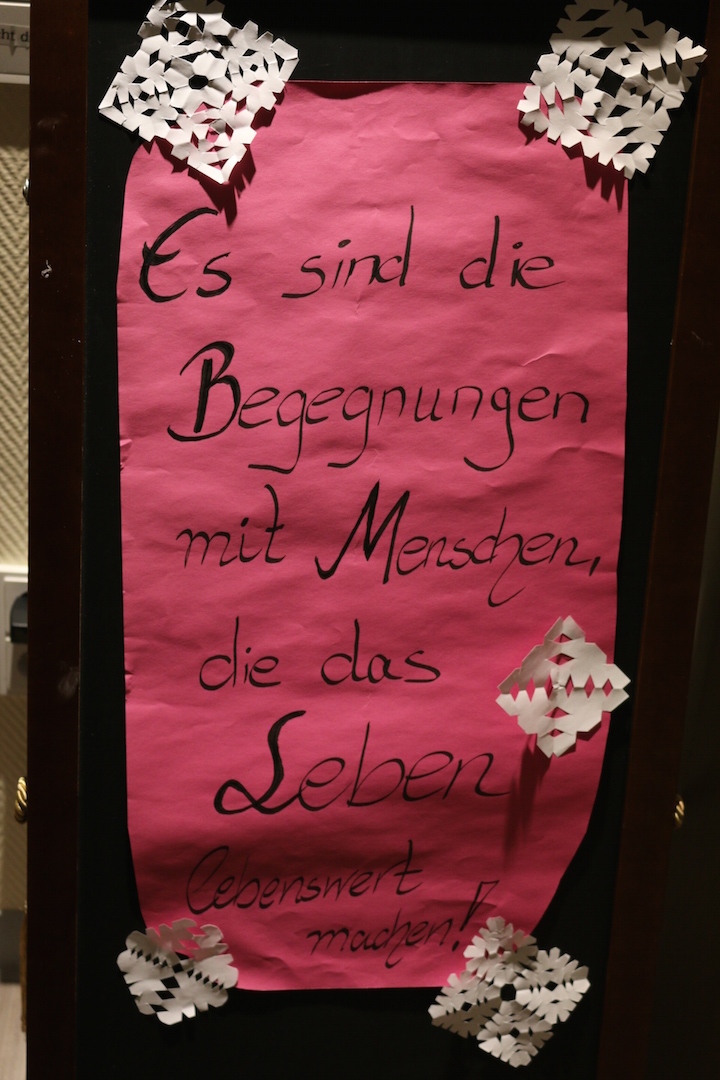 Es sind die
Begegnungen
mit Menschen,
die das
Leben
lebenswert
machen!